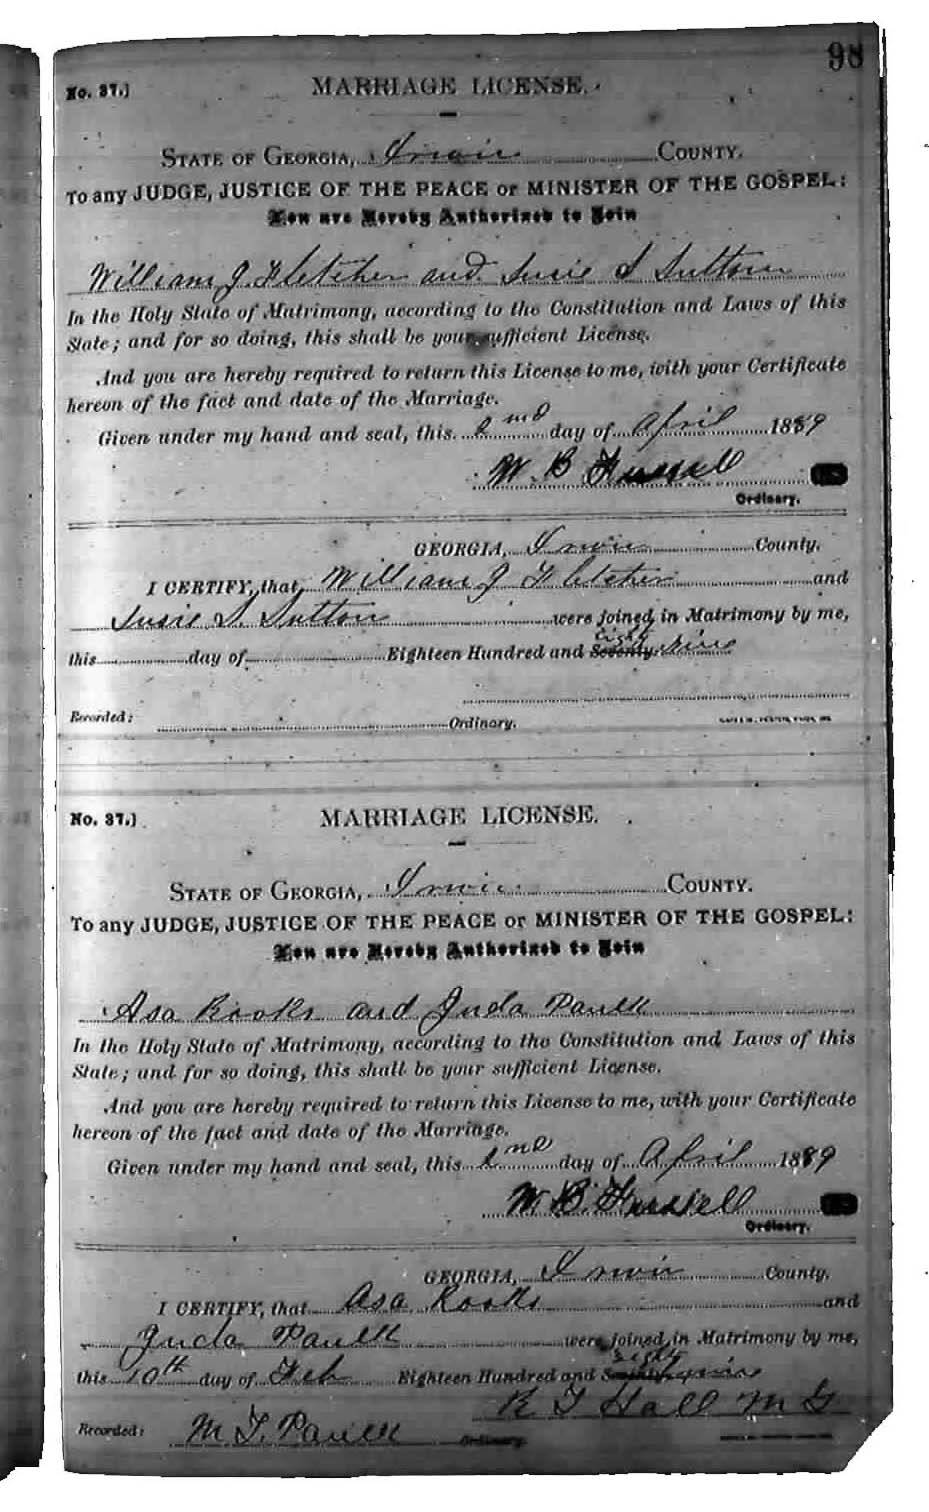 98
No. 37.)
MARRIAGE LICENSE.
STATE OF GEORGIA, Irwin COUNTY.
To any JUDGE, JUSTICE OF THE PEACE or MINISTER OF THE GOSPEL:
You are Hereby Authorized to Join
William J. Fletcher and Susie S Sutton
In the Holy State of Matrimony, according to the Constitution and Laws of this
State; and for so doing, this shall be your sufficient License.
And you are hereby required to return this License to me, with your Certificate
hereon of the fact and date of the Marriage.
Given under my hand and seal, this 2nd day of April 1889
W. B. Fussell
Ordinary.
GEORGIA, Irwin County.
I CERTIFY, that William J Fletcher and
Susie S. Sutton were joined in Matrimony by me,
this day of Eighteen Hundred and Seventy Eighty nine
Recorded: Ordinary.
No. 37.)
MARRIAGE LICENSE.
STATE OF GEORGIA, Irwin COUNTY.
To any JUDGE, JUSTICE OF THE PEACE or MINISTER OF THE GOSPEL:
You are Hereby Authorized to Join
Asa Rooks and Juda Paulk
In the Holy State of Matrimony, according to the Constitution and Laws of this
State; and for so doing, this shall be your sufficient License.
And you are hereby required to return this License to me, with your Certificate
hereon of the fact and date of the Marriage.
Given under my hand and seal, this 2nd day of April 1889
W. B. Fussell
Ordinary.
GEORGIA, Irwin County.
I CERTIFY, that Asa Rooks and
Juda Paulk were joined in Matrimony by me,
this 10th day of Feb Eighteen Hundred and Seventy Eighty nine
R T Hall M G
Recorded: M. T. Paulk Ordinary.